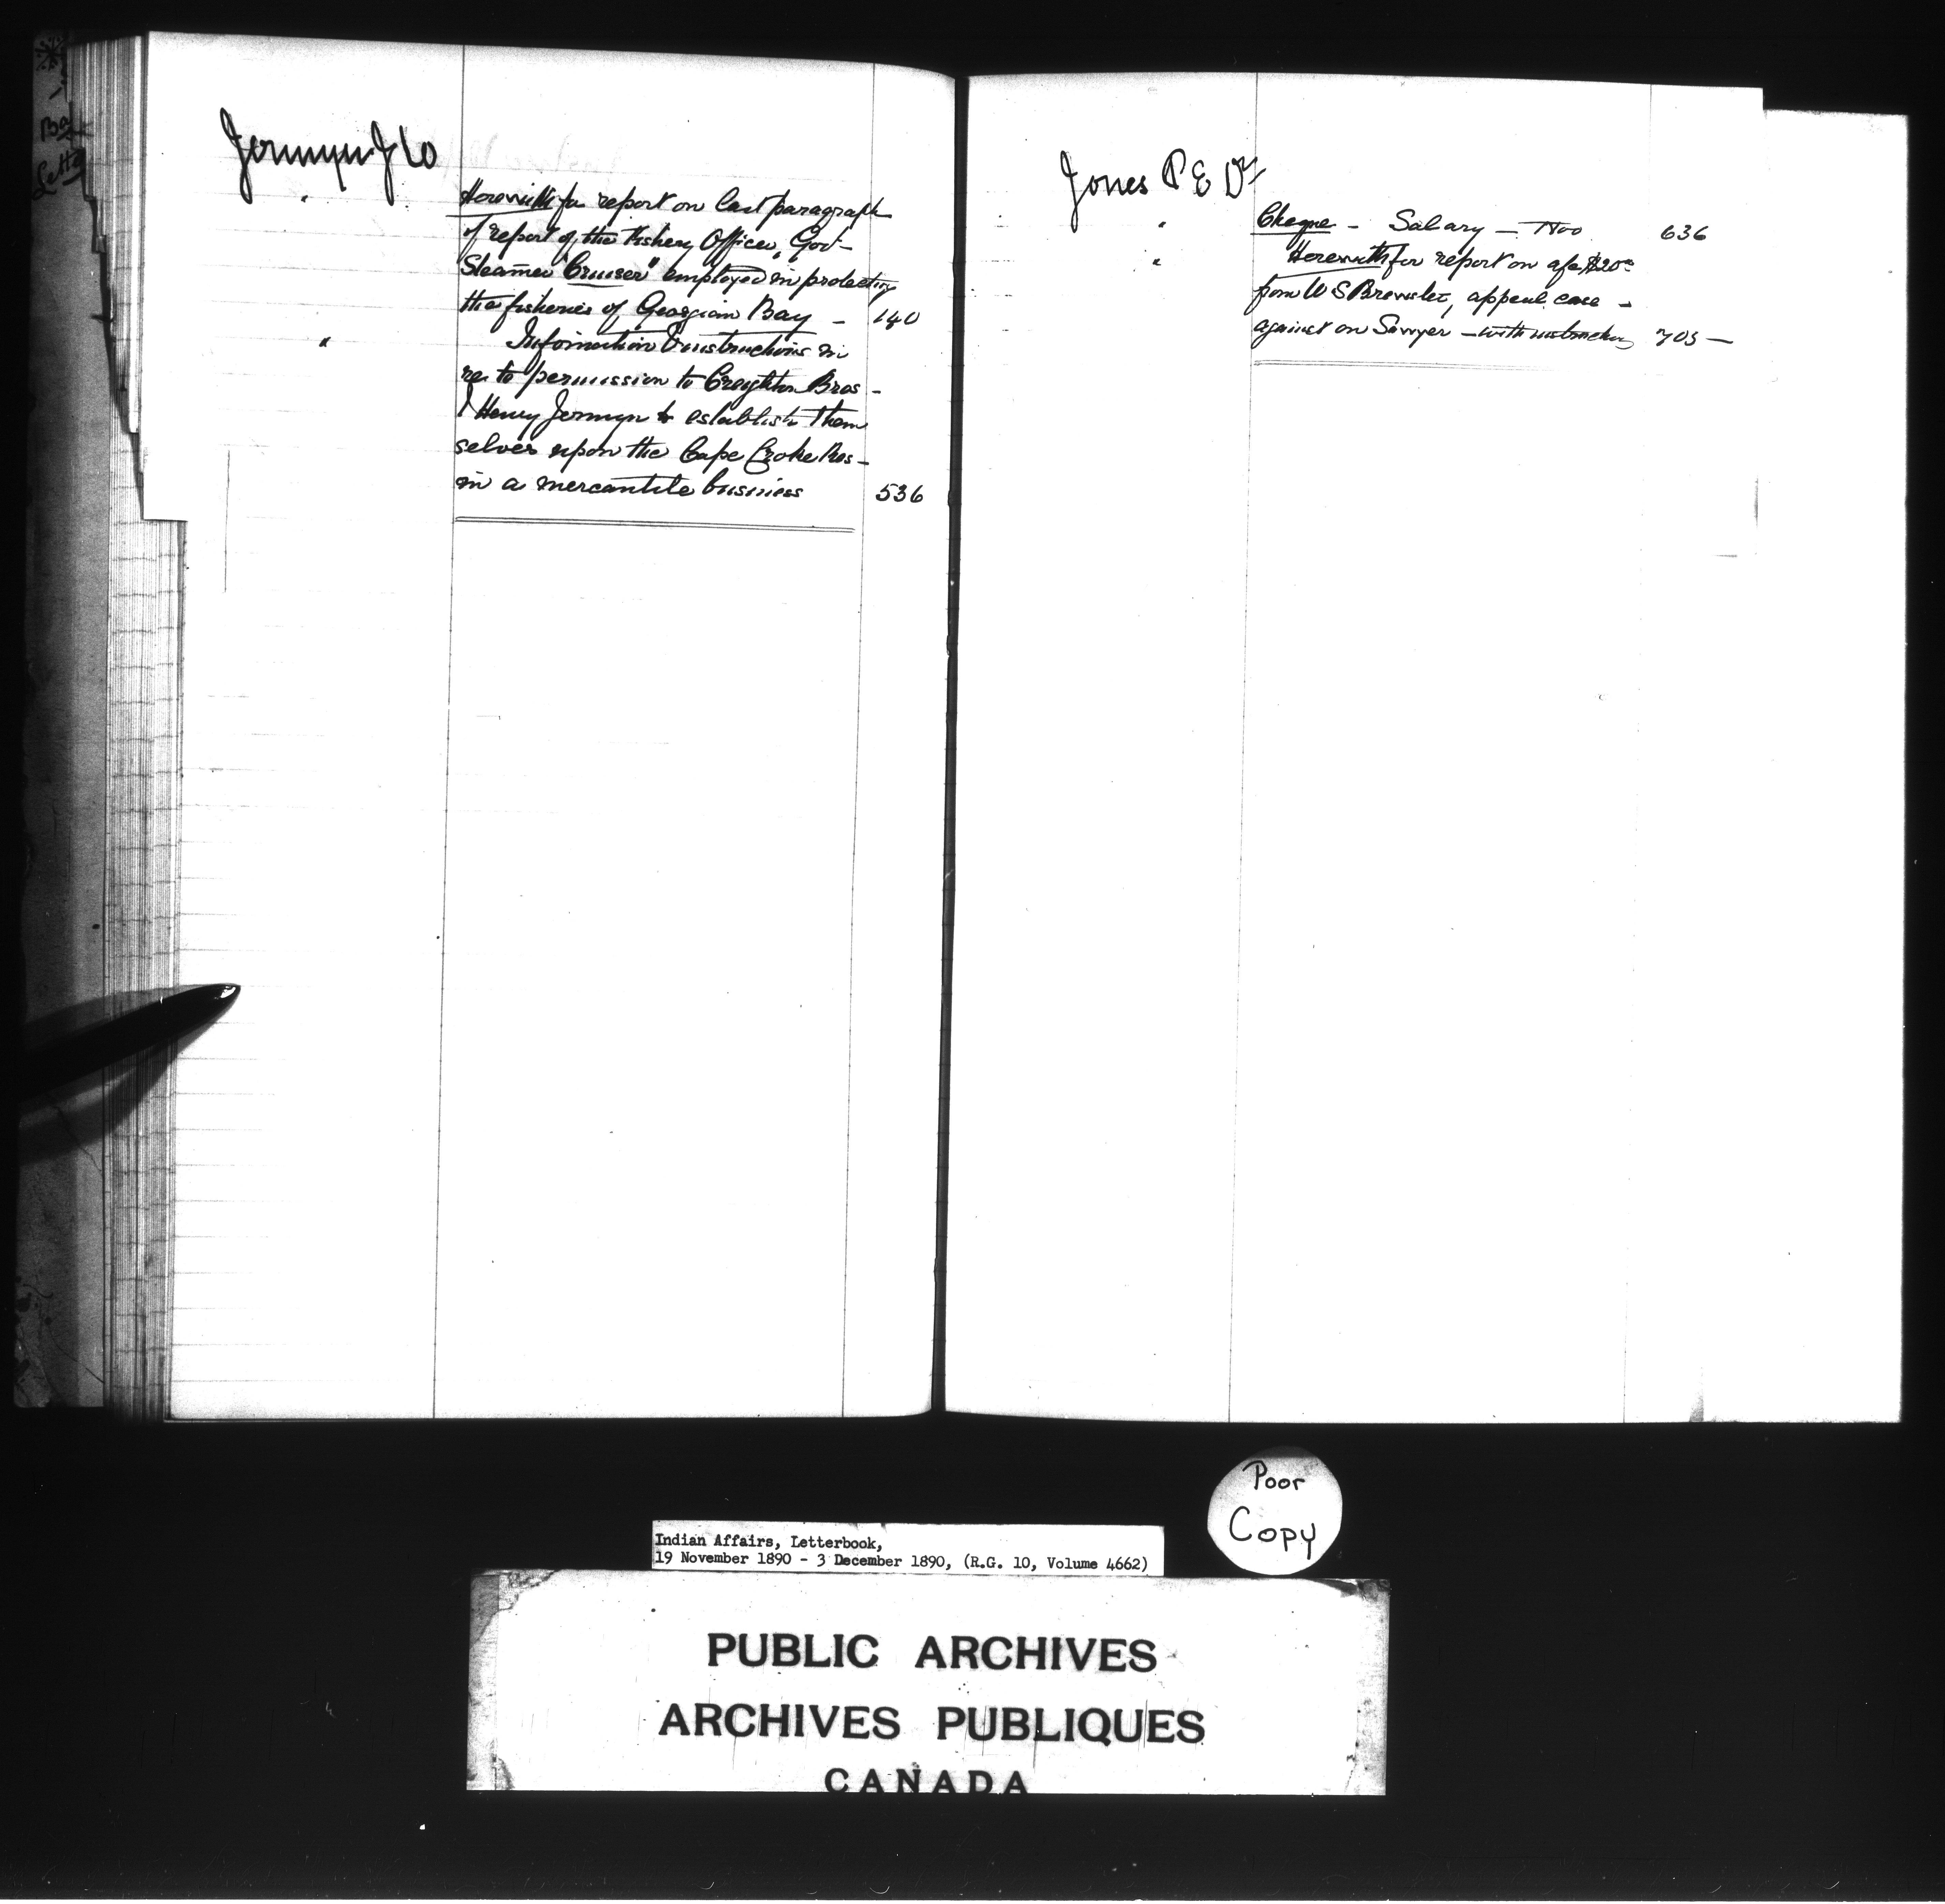 Jermyn J W
" Herewith for report on last paragraph
of report of the Fishery Officer, Govt
Steamer "Cruiser" employed in protecting
the fisheries of Georgian Bay - 140
" Information & instructions in
re to permission to Creighton Bros -
& Henry Jermyn to establish them
selves upon the Cape Croker Res -
in a mercantile business 536
Jones P E Dr
" Cheque - Salary - Nov 636
" Herewith for report on a/c $20
from W S Brewster, appeal case -
against on Sawyer - with instructions 705 -
Poor
Copy
Indian Affairs, Letterbook,
19 November 1890 - 3 December 1890, (R.G. 10, Volume 4662)
PUBLIC ARCHIVES
ARCHIVES PUBLIQUES
CANADA